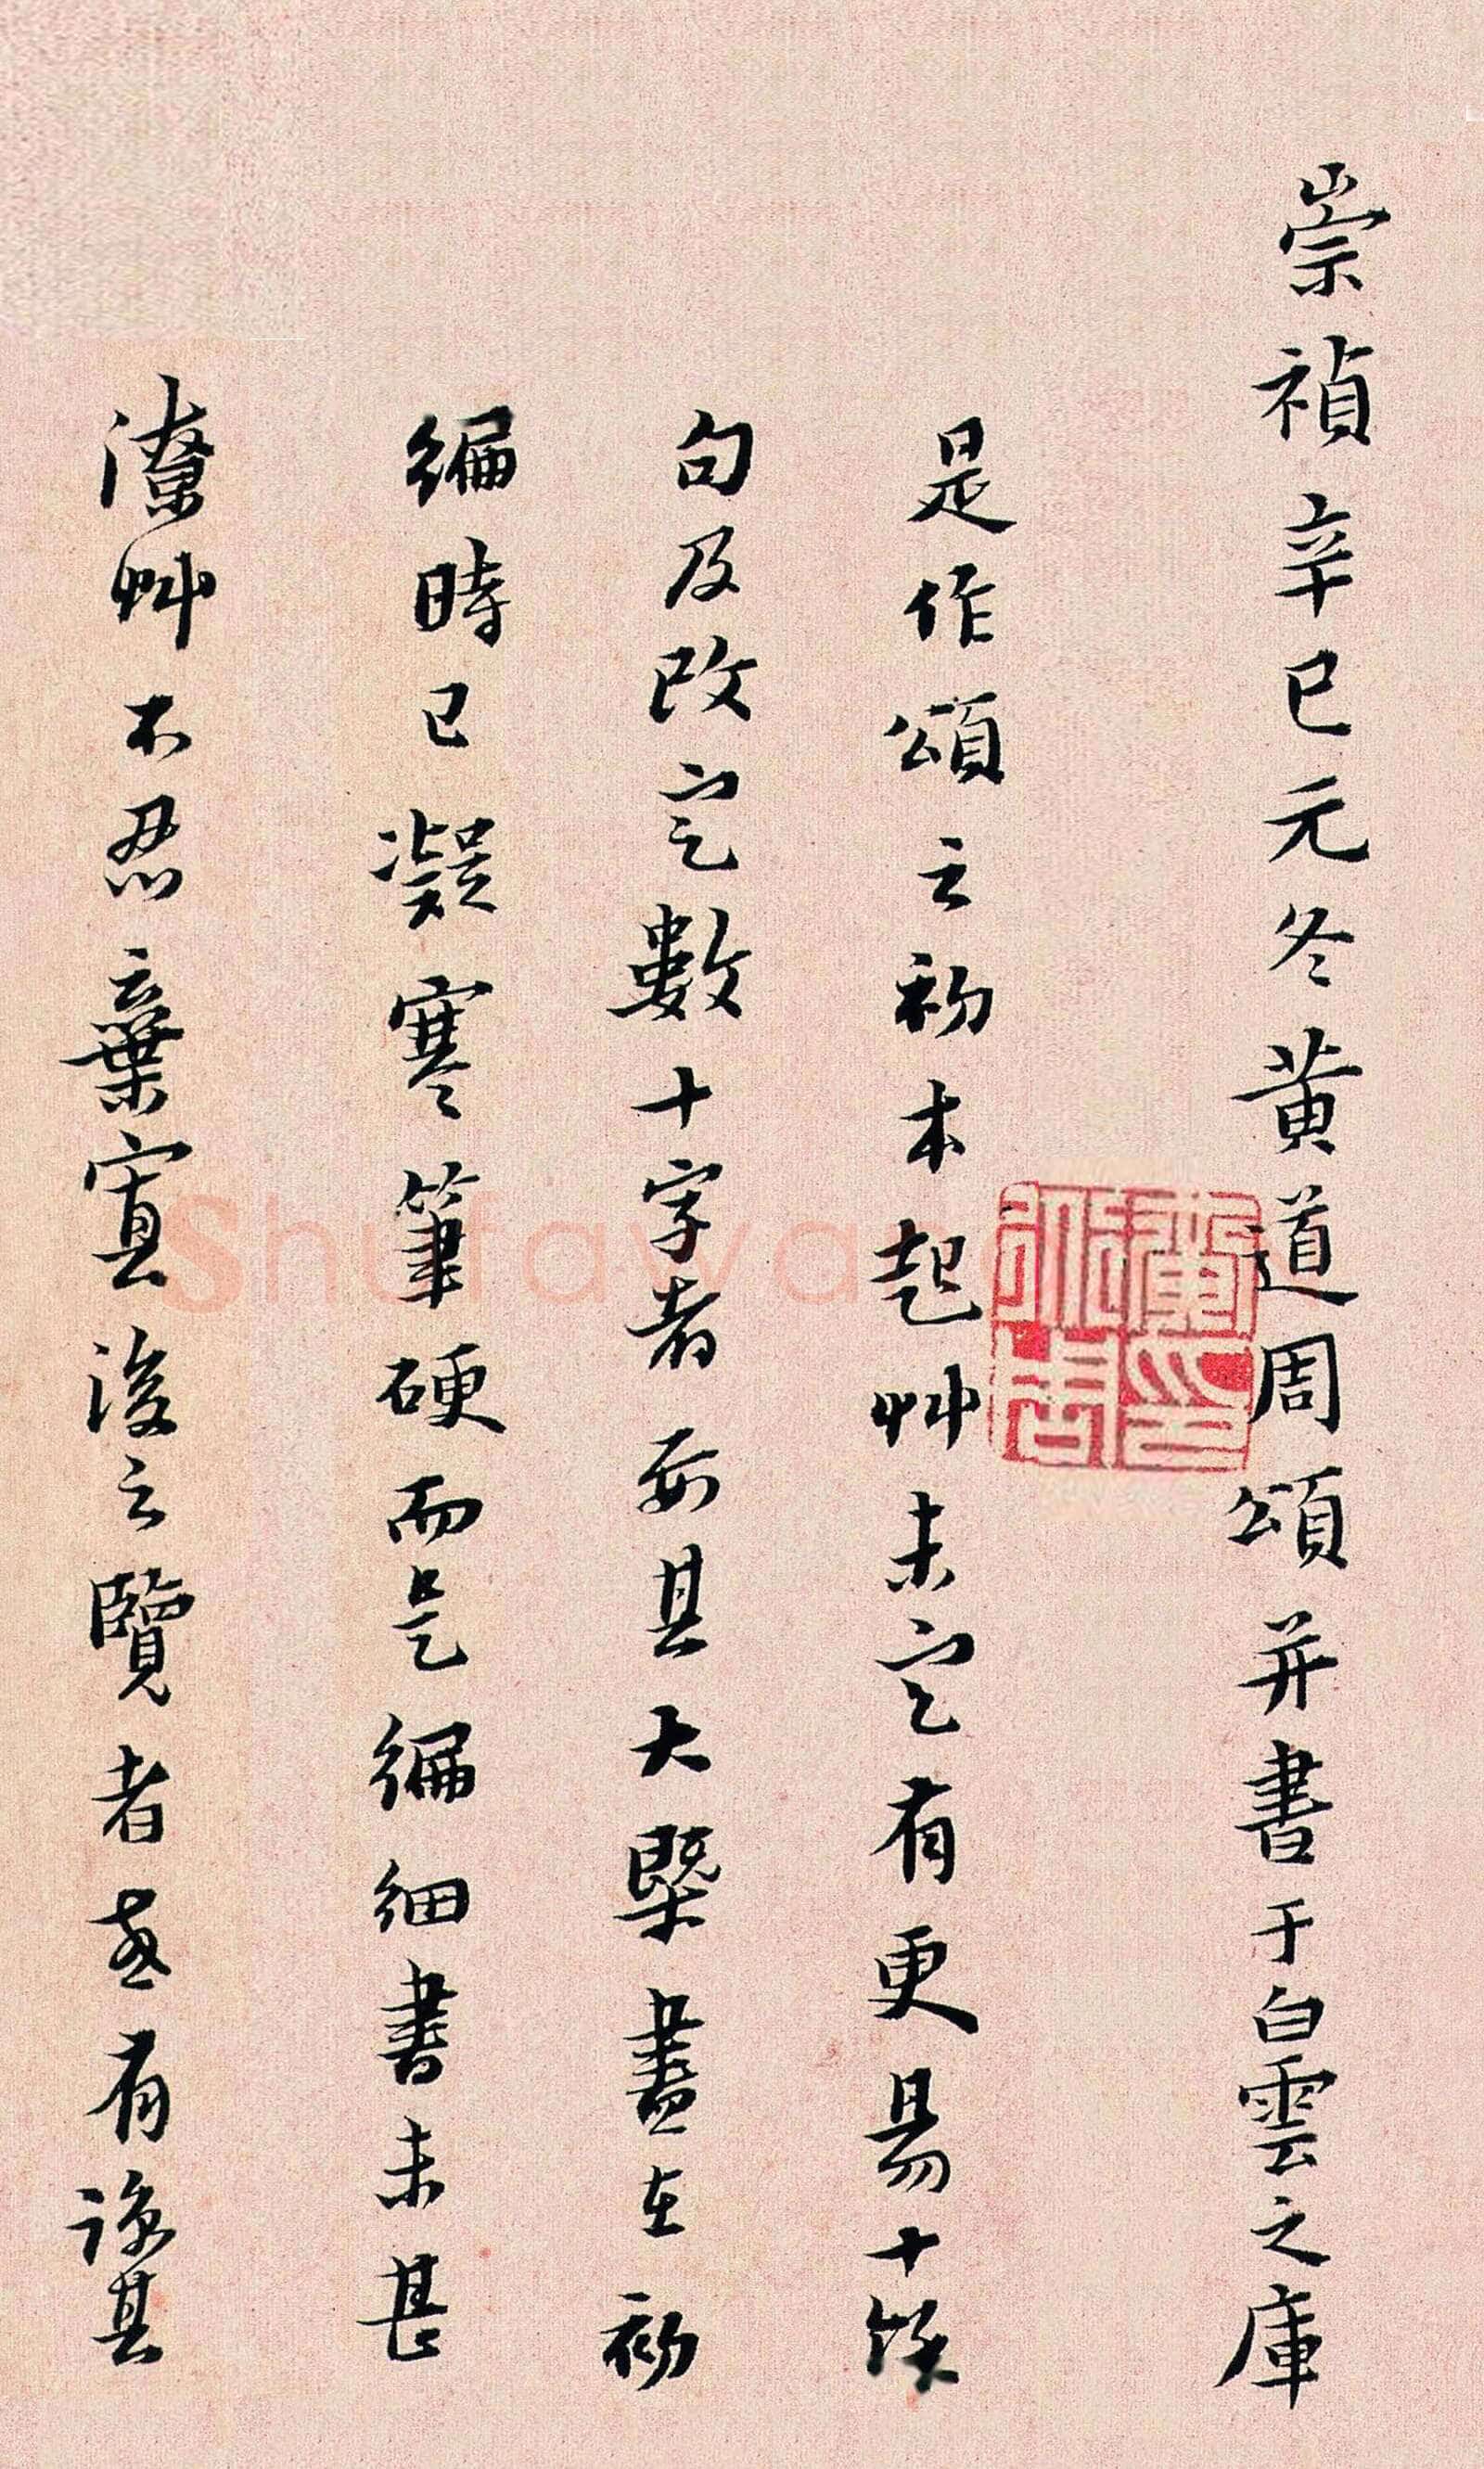 崇禎辛巳元冬黃道周頌并書于白雲之庫
是作頌之初本起艸未定有更易十餘
句及改定數十字者而其大槩盡在初
編時已凝寒筆硬而是編細書未甚
潦艸不忍棄寘後之覽者有諒其
Shufawa